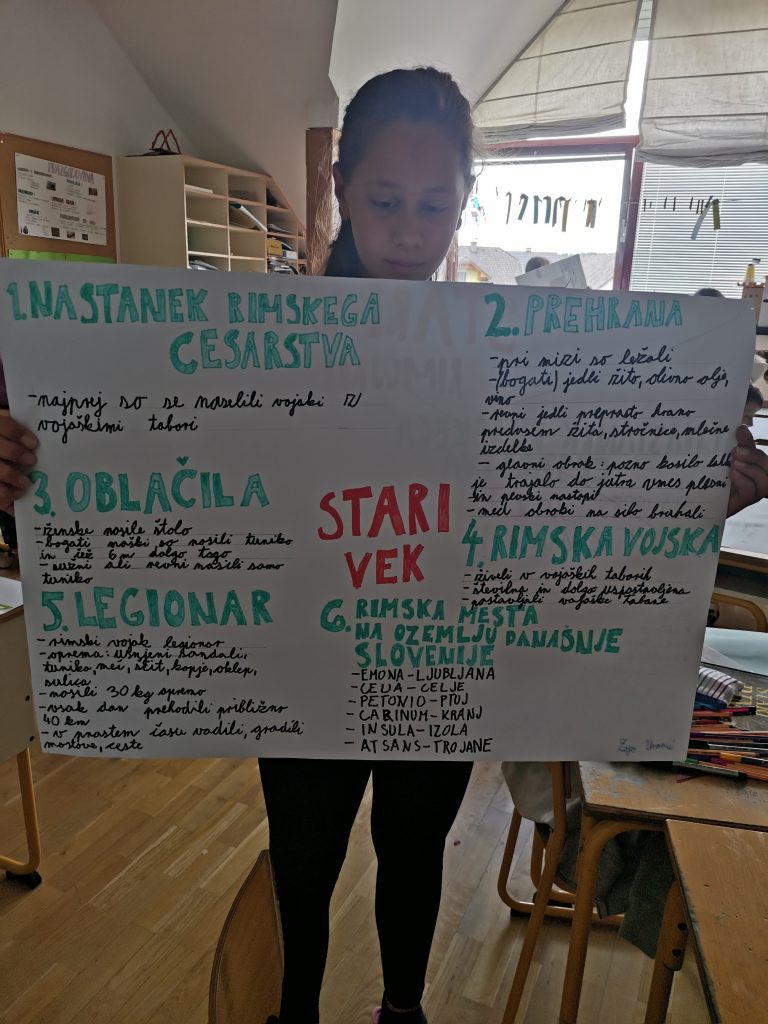 PRAZGODOVINA
1. NASTANEK RIMSKEGA
CESARSTVA
- najprej so se naselili vojski iz/
vojaškimi tabori
2. PREHRANA
- pri mizi so ležali
- (bogati) jedli žito, olivno olje,
vino
- revni jedli preprosto hrano
predvsem žita, stročnice, mlečne
izdelke
- glavni obrok: pozno kosilo lahk
je trajalo do jutra vmes plesni
in pevski nastopi
- med obroki na silo bruhali
3. OBLAČILA
- ženske nosile štolo
- bogati moški so nosili tuniko
in čež 6 m dolgo togo
- sužni ali revni nosili samo
tuniko
STARI
VEK
4. RIMSKA VOJSKA
- živeli v vojaških taborih
- številna in dolgo
- postavljali vojaške tabore
5. LEGIONAR
- rimski vojak legionar
- oprema: usnjeni sandali,
tunika, meč, ščit, kopje, oklep,
sulica
- nosili 30 kg opremo
- vsak dan prehodili približno
40 km
- v prostem času vadili, gradili
mostove, ceste
6. RIMSKA MESTA
NA OZEMLJU DANAŠNJE
SLOVENIJE
- EMONA - LJUBLJANA
- CELIA - CELJE
- PETONIO - PTUJ
- CARINUM - KRANJ
- INSULA - IZOLA
- ATSANS - TROJANE